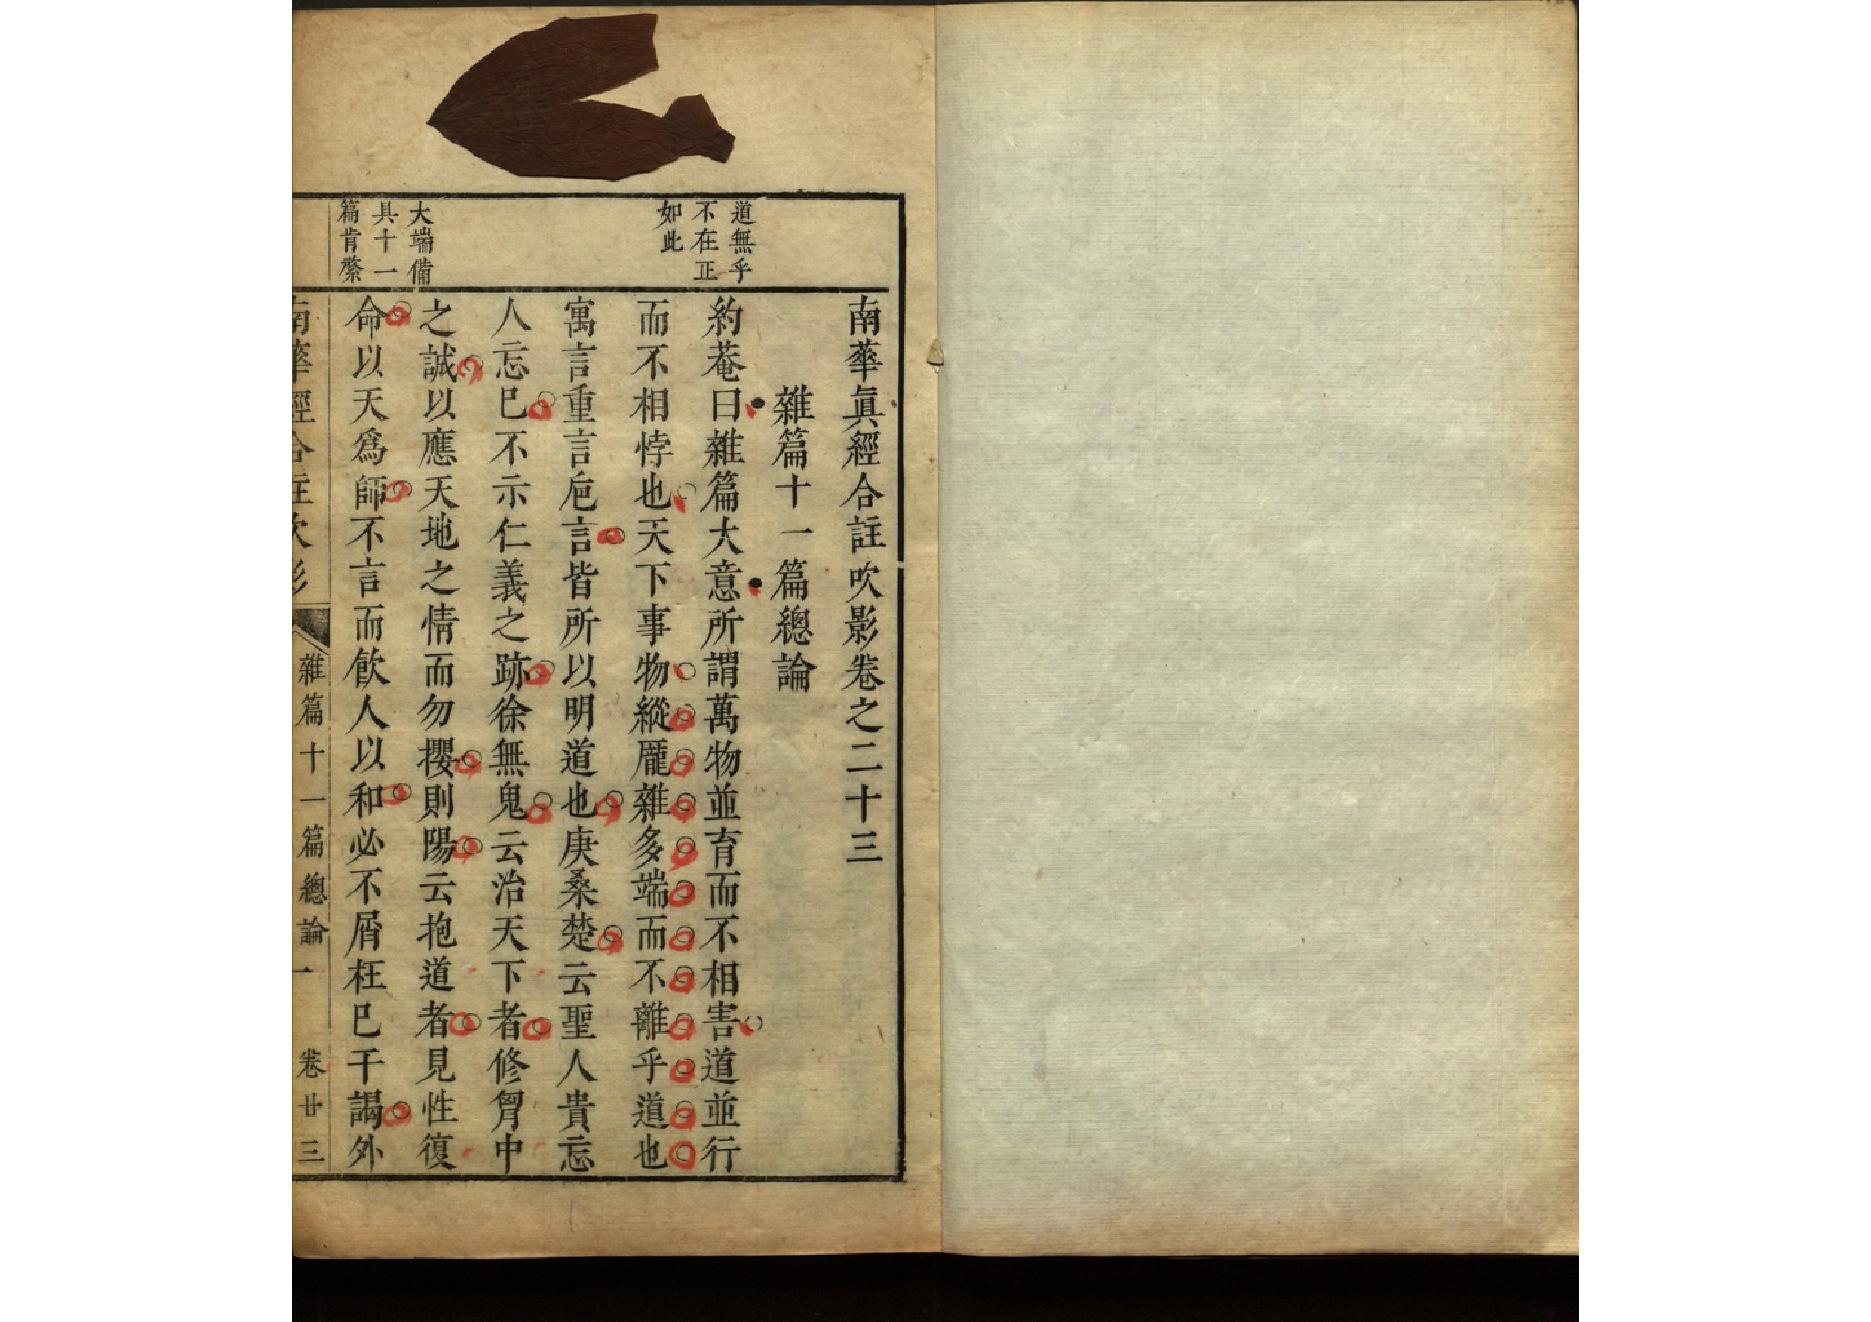 道無乎
不在正
如此
大端備
具十一
篇肯綮
南華眞經合註吹影卷之二十三
雜篇十一篇總論
約菴曰雜篇大意所謂萬物並育而不相害道並行
而不相悖也天下事物縱龎雜多端而不離乎道也
寓言重言巵言皆所以明道也庚桑楚云聖人貴忘
人忘巳不示仁義之跡徐無鬼云治天下者修胷中
之誠以應天地之情而勿攖則陽云抱道者見性復
命以天爲師不言而飮人以和必不屑枉巳干謁外
南華經合註吹影
雜篇十一篇總論 一 卷廿三